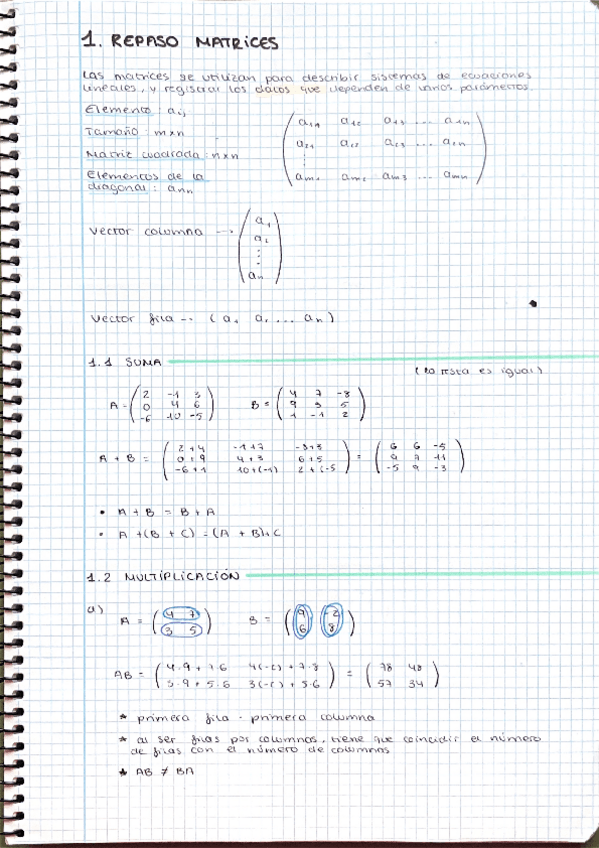 1. REPASO MATRICES
Las matrices se utilizan para describir sistemas de ecuaciones
lineales, y registrar los datos que dependen de varios parámetros.
Elemento: aij
Tamaño: m×n
Matriz cuadrada: n×n
Elementos de la
diagonal: ann
( a11 a12 a13 ... a1n )
( a21 a22 a23 ... a2n )
⋮
( am1 am2 am3 ... amn )
vector columna --> ( a1
a2
⋮
an )
vector fila --> ( a1 a2 ... an )
1.1 SUMA
(la resta es igual)
A = ( 2 -1 3 ) B = ( 4 7 -8 )
( 0 4 6 ) ( 9 3 5 )
( -6 10 -5 ) ( 1 -1 2 )
A + B = ( 2+4 -1+7 ) = ( 6 6 -5 )
( 0+9 4+3 6+5 ) ( 9 7 11 )
( -6+1 10+(-1) 2+(-5 ) ( -5 9 -3 )
• A + B = B + A
• A + (B + C) = (A + B)+C
1.2 MULTIPLICACIÓN
a) A = ( 4 7 ) B = ( 9 -2 )
( 3 5 ) ( 6 8 )
AB = ( 4·9 + 7·6 4(-2) + 7·8 ) = ( 78 48 )
( 3·9 + 5·6 3(-2) + 5·6 ) ( 57 34 )
* primera fila - primera columna
* al ser filas por columnas, tiene que coincidir el número
de filas con el número de columnas
* AB ≠ BA